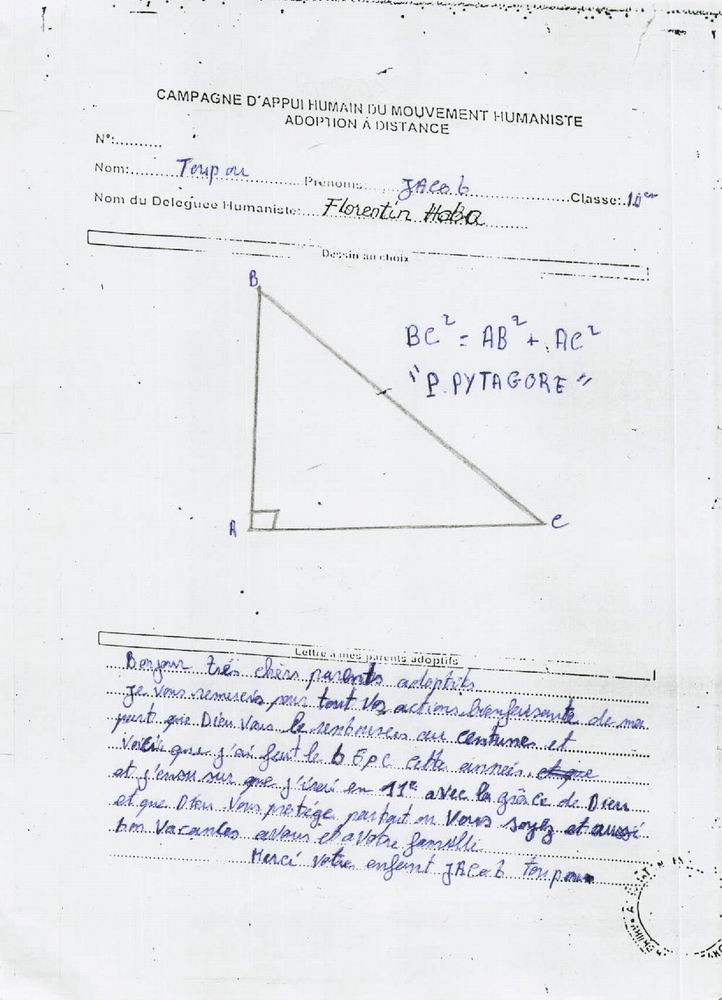 CAMPAGNE D'APPUI HUMAIN DU MOUVEMENT HUMANISTE
ADOPTION À DISTANCE
N°:..........
Nom: Toupou Prénoms: JAcob Classe: 10er
Nom du Deleguee Humaniste: Florentin Haba
Dessin au choix
B
BC² = AB² + AC²
"P. PYTAGORE"
A
C
Lettre à mes parents adoptifs
Bonjour très chèrs parents adoptifs
Je vous remercis pour tout vos actions bienfaisante de ma
part que Dieu vous le rembources au centunes et
voici que j'ai fait le b EPC cette anneés et que
et j'ensu sur que j'irai en 11e avec la grâce de Dieu
et que Dieu vous protége partout ou vous soyez et aussi
bon vacantes a vous et a votre famille
Merci votre enfant JAcob Toupou